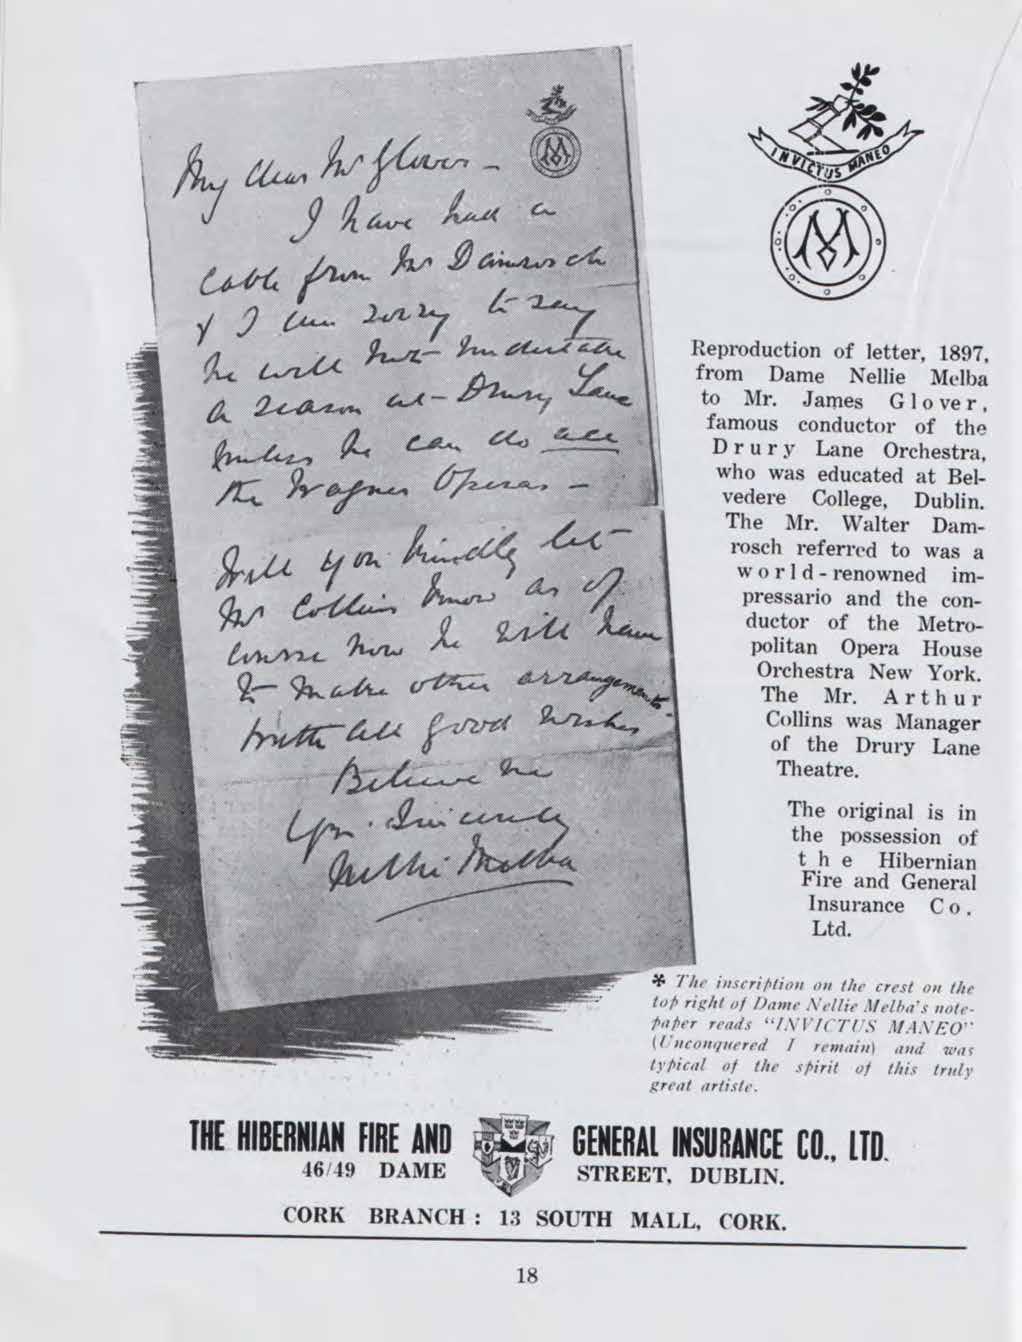 My dear Mr Glover –
I have had a
Cable from Mr Damrosch
& I am sorry to say
he will not undertake
a season at Drury Lane
unless he can do all
the Wagner Operas –
Will you kindly let
Mr Collins know as of
course now he will have
to make other arrangements.
With all good wishes
Believe me
Yrs. Sincerely
Nellie Melba
M
INVICTUS MANEO
M
Reproduction of letter, 1897,
from Dame Nellie Melba
to Mr. James Glover,
famous conductor of the
Drury Lane Orchestra,
who was educated at Bel-
vedere College, Dublin.
The Mr. Walter Dam-
rosch referred to was a
world-renowned im-
pressario and the con-
ductor of the Metro-
politan Opera House
Orchestra New York.
The Mr. Arthur
Collins was Manager
of the Drury Lane
Theatre.
The original is in
the possession of
the Hibernian
Fire and General
Insurance Co.
Ltd.
* The inscription on the crest on the
top right of Dame Nellie Melba's note-
paper reads "INVICTUS MANEO"
(Unconquered I remain) and was
typical of the spirit of this truly
great artiste.
THE HIBERNIAN FIRE AND GENERAL INSURANCE CO., LTD.
46/49 DAME STREET, DUBLIN.
CORK BRANCH : 13 SOUTH MALL, CORK.
18